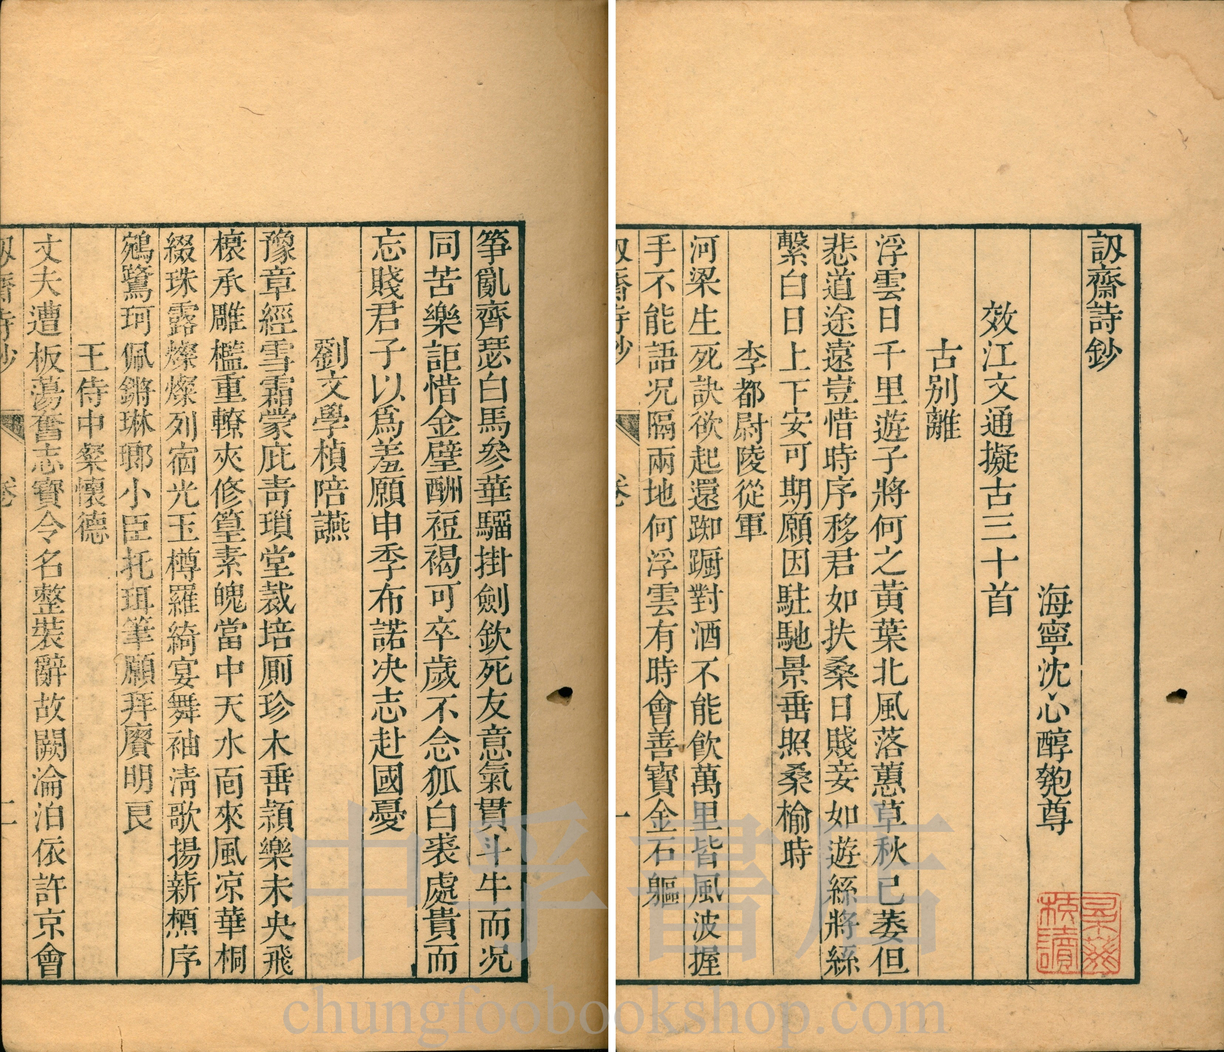 訒齋詩鈔
海寧沈心醇匏尊
效江文通擬古三十首
古別離
浮雲日千里遊子將何之黃葉北風落蕙草秋已萎但
悲道途遠豈惜時序移君如扶桑日賤妾如遊絲將絲
繫白日上下安可期願因駐馳景垂照桑榆時
李都尉陵從軍
河梁生死訣欲起還踟躕對酒不能飲萬里皆風波握
手不能語况隔兩地何浮雲有時會善寳金石軀
訒齋詩鈔 卷 一
箏亂齊瑟白馬參華騮掛劍欽死友意氣貫斗牛而况
同苦樂詎惜金璧酬裋褐可卒歲不念狐白裘處貴而
忘賤君子以爲羞願申季布諾决志赴國憂
劉文學楨陪讌
豫章經雪霜蒙庇靑瑣堂裁培厠珍木垂潁樂未央飛
榱承雕檻重轑夾修篁素魄當中天水面來風凉華桐
綴珠露燦燦列宿光玉樽羅綺宴舞袖淸歌揚薪槱序
鵷鷺珂佩鏘琳瑯小臣托珥筆願拜賡明良
王侍中粲懷德
丈夫遭板蕩奮志寳令名整裝辭故闕淪泊依許京會
訒齋詩鈔 卷 二
中孚書店
chungfoobookshop.com